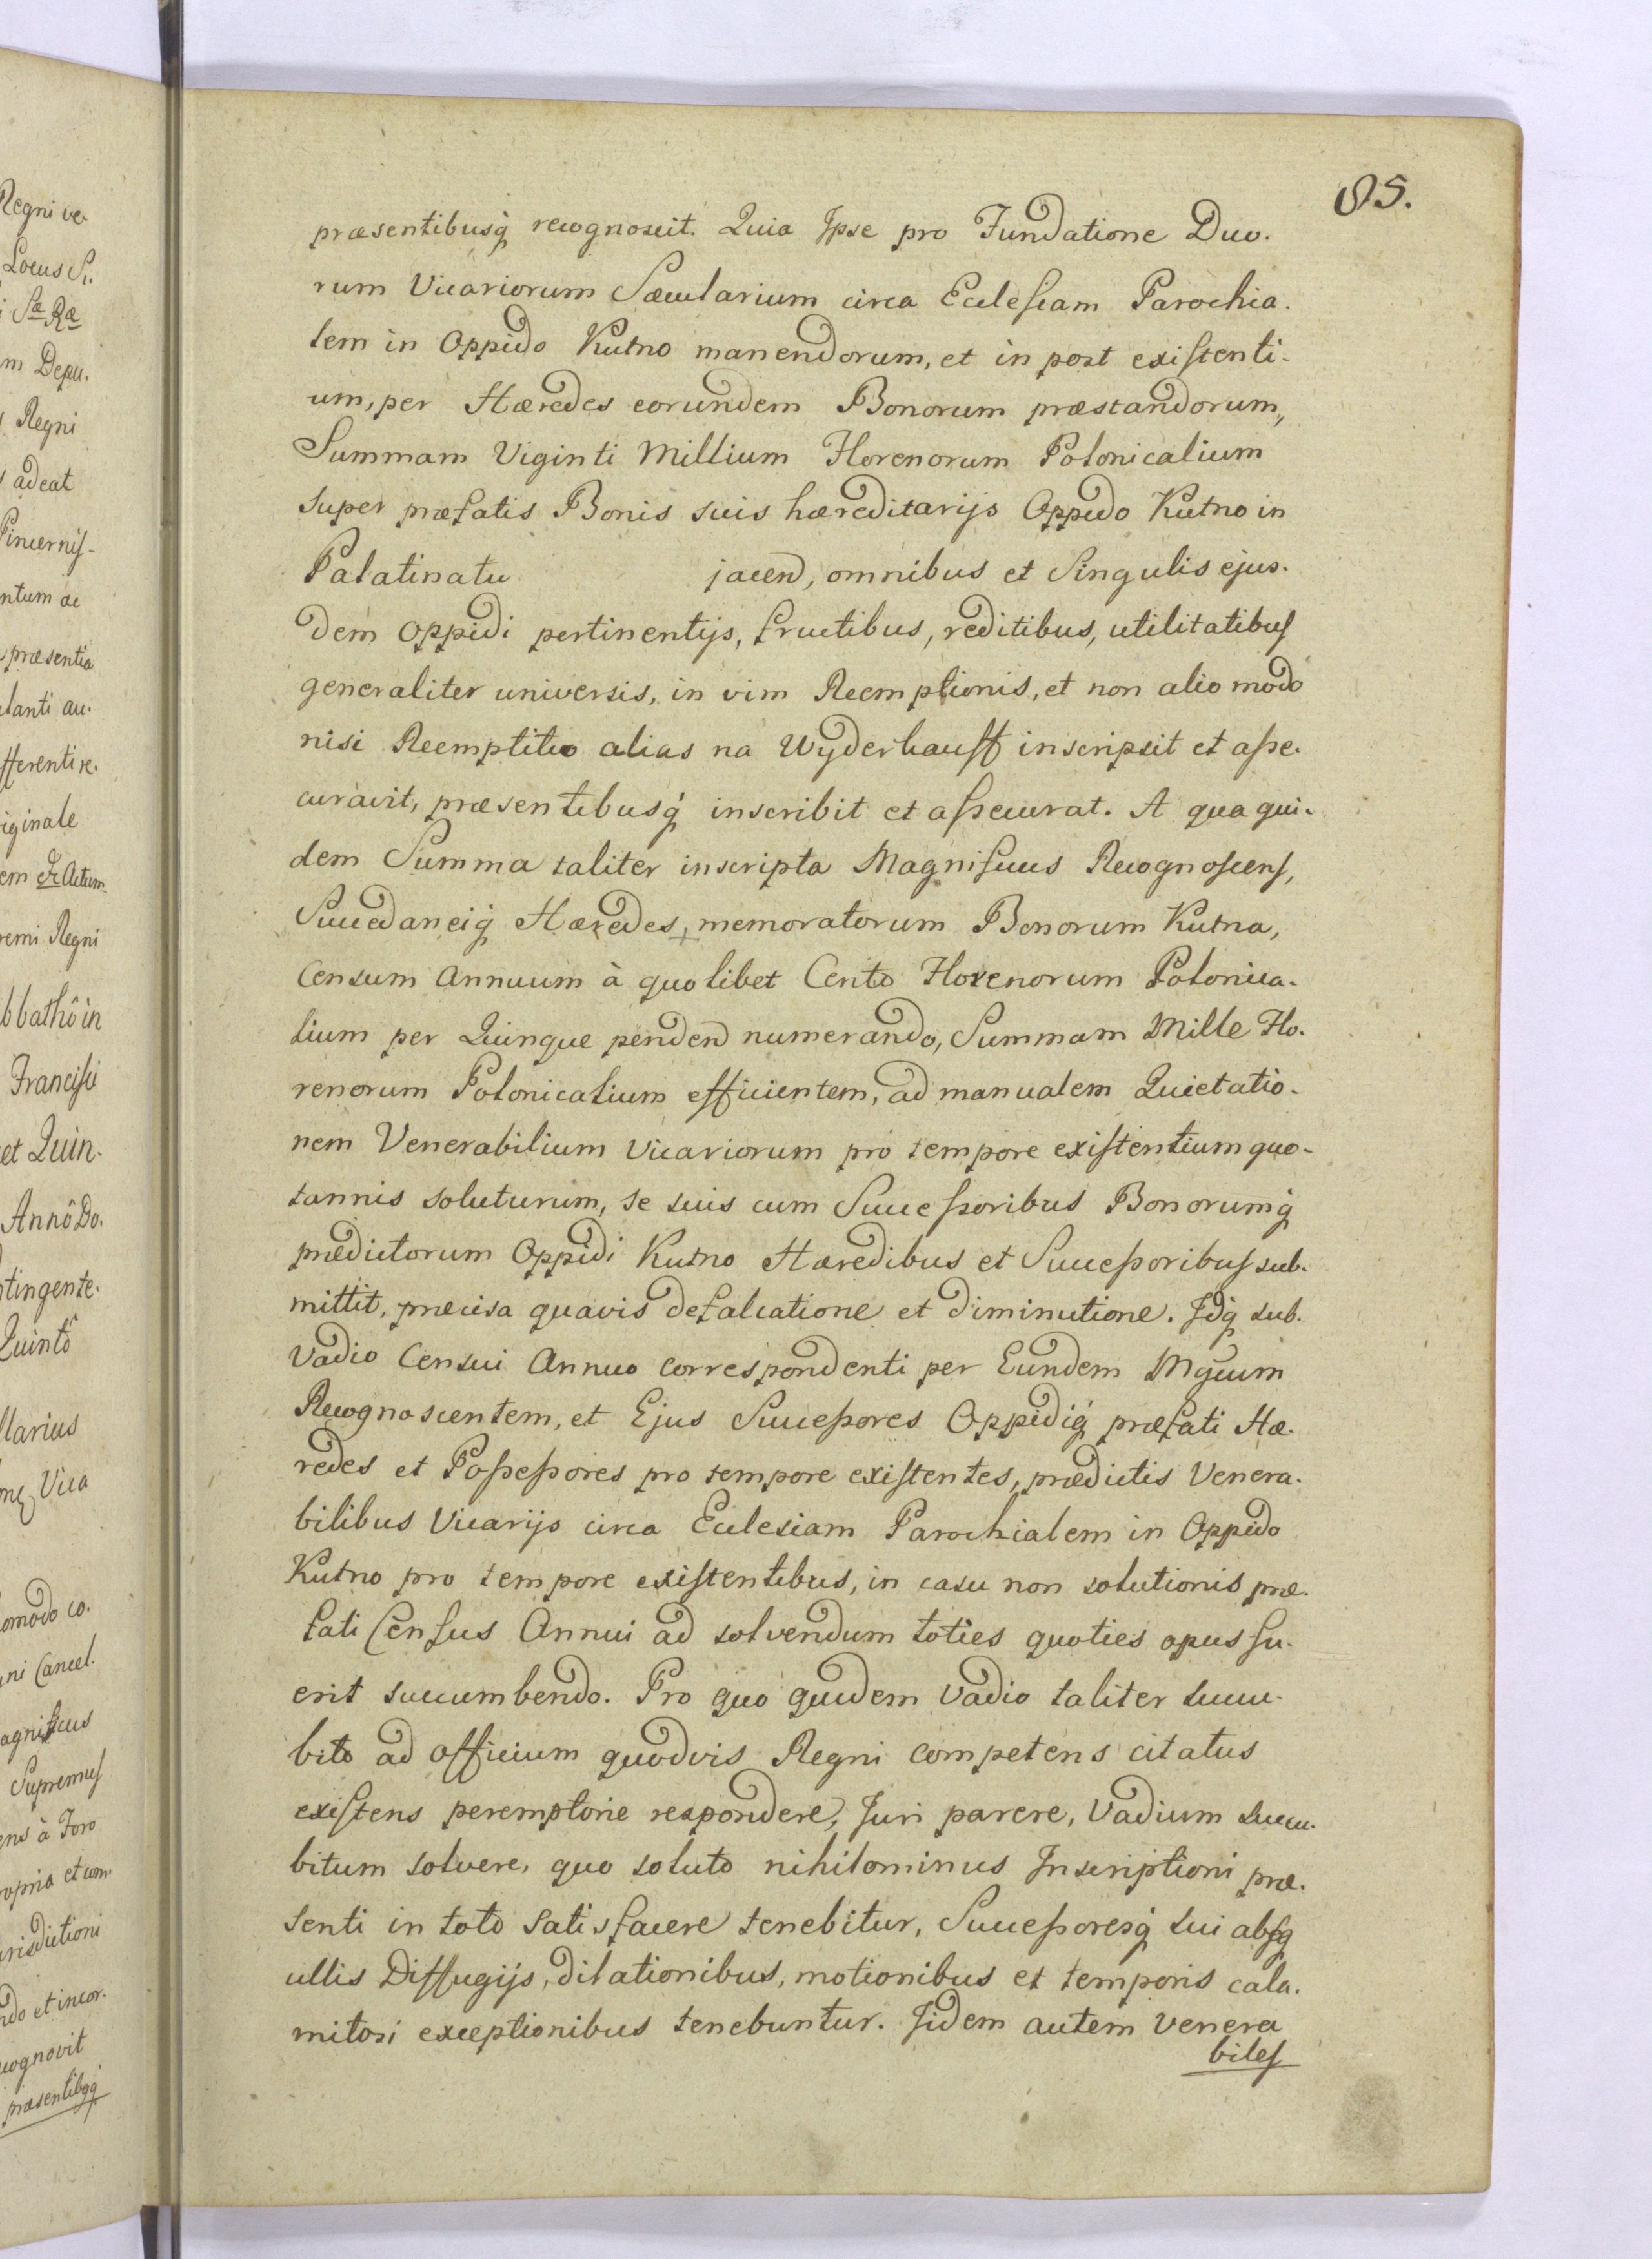 85.
præsentibusq́ recognoscit. Quia Ipse pro Fundatione Duo-
rum Vicariorum Sæcularium circa Ecclesiam Parochia-
lem in Oppido Kutno manendorum, et in post existenti-
um, per Hæredes eorundem Bonorum præstandorum,
Summam Viginti Millium Florenorum Polonicalium
super præfatis Bonis suis hæreditarijs Oppido Kutno in
Palatinatu jacend, omnibus et Singulis ejus-
dem oppidi pertinentijs, fructibus, reditibus, utilitatibus
generaliter universis, in vim Reemptionis, et non alio modo
nisi Reemptitio alias na Wyderkauff inscripsit et asse-
curavit, præsentibusq́ inscribit et assecurat. A qua qui-
dem Summa taliter inscripta Magnificus Recognoscens,
Succedaneiq́ Hæredes, memoratorum Bonorum Kutna,
Censum Annuum à quolibet Cento Florenorum Polonica-
lium per Quinque pendend numerando, Summam Mille Flo-
renorum Polonicalium efficientem, ad manualem Quietatio-
nem Venerabilium Vicariorum pro tempore existentium quo-
tannis soluturum, se suis cum Successoribus Bonorumq́
prædictorum Oppidi Kutno Hæredibus et Successoribus sub-
mittit, præcisa quavis defalcatione et diminutione. Idq́ sub-
Vadio Censui Annuo correspondenti per Eundem Mgficum
Recognoscentem, et Ejus Successores Oppidiq́ præfati Hæ-
redes et Possessores pro tempore existentes, prædictis Venera-
bilibus Vicarijs circa Ecclesiam Parochialem in Oppido
Kutno pro tempore existentibus, in casu non solutionis præ-
fati Census Annui ad solvendum toties quoties opus fu-
erit succumbendo. Pro quo quidem Vadio taliter succu-
bito ad officium quodvis Regni competens citatus
existens peremptorie respondere, Juri parere, Vadium succu-
bitum solvere, quo soluto nihilominus Inscriptioni præ-
senti in toto satisfacere tenebitur, Successoresq́ sui absq
ullis Diffugijs, dilationibus, motionibus et temporis cala-
mitosi exceptionibus tenebuntur. Iidem autem Venera
biles